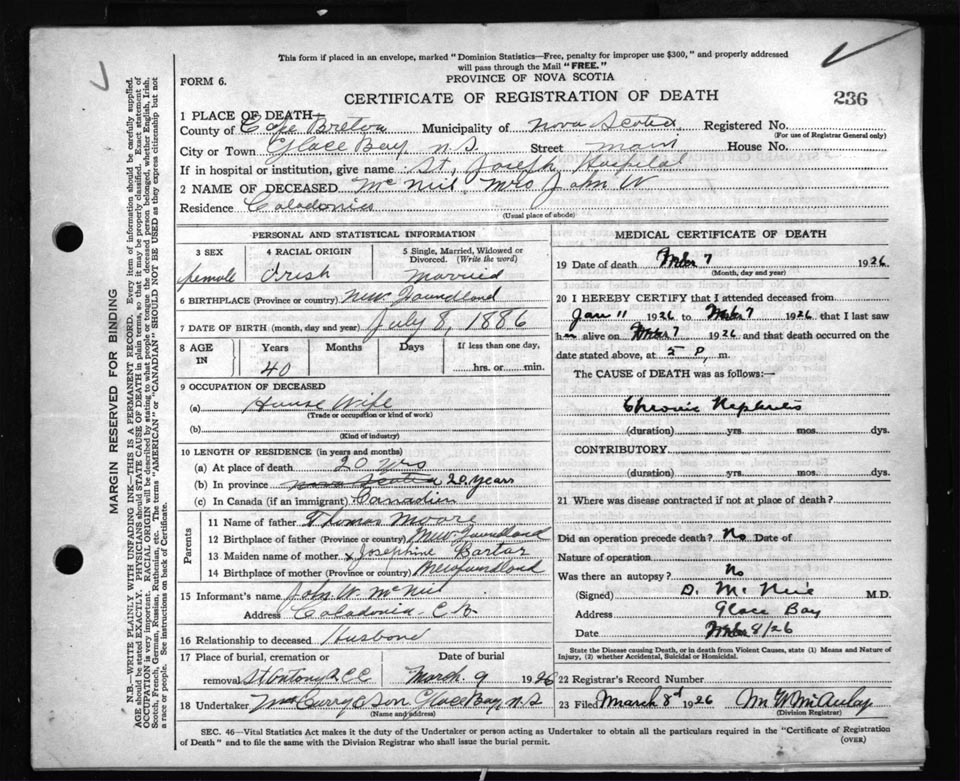 This form if placed in an envelope, marked "Dominion Statistics—Free, penalty for improper use $300," and properly addressed
will pass through the Mail "FREE."
FORM 6.
PROVINCE OF NOVA SCOTIA
CERTIFICATE OF REGISTRATION OF DEATH
236
1 PLACE OF DEATH—
County of Cape Breton Municipality of Nova Scotia Registered No.
(For use of Registrar General only)
City or Town Glace Bay N.S. Street Main House No.
If in hospital or institution, give name St. Joseph Hospital
2 NAME OF DECEASED McNeil, Mrs John W
Residence Caladonia
(Usual place of abode)
PERSONAL AND STATISTICAL INFORMATION
3 SEX 4 RACIAL ORIGIN 5 Single, Married, Widowed or Divorced. (Write the word)
female Irish Married
6 BIRTHPLACE (Province or country) New Foundland
7 DATE OF BIRTH (month, day and year) July 8, 1886
8 AGE IN Years Months Days If less than one day,
40 hrs. or min.
9 OCCUPATION OF DECEASED
(a) House Wife
(Trade or occupation or kind of work)
(b)
(Kind of industry)
10 LENGTH OF RESIDENCE (in years and months)
(a) At place of death 20 yrs
(b) In province Nova Scotia 20 years
(c) In Canada (if an immigrant) Canadien
Parents
11 Name of father Thomas Moore
12 Birthplace of father (Province or country) New Foundland
13 Maiden name of mother x Josephine Bartar
14 Birthplace of mother (Province or country) Newfoundland
15 Informant's name John W. McNeil
Address Caladonia C.B.
16 Relationship to deceased Husbond
17 Place of burial, cremation or Date of burial
removal St Antony RCC March 9 1926
18 Undertaker Curry & Son Glace Bay, N.S
(Name and address)
MEDICAL CERTIFICATE OF DEATH
19 Date of death 7 1926
(Month, day and year)
20 I HEREBY CERTIFY that I attended deceased from
Jan 11 1926 to 7 1926 that I last saw
h alive on 7 1926 and that death occurred on the
date stated above, at 5 P. m.
The CAUSE of DEATH was as follows:—
Chronic Nephritis
(duration) yrs. mos. dys.
CONTRIBUTORY
(duration) yrs. mos. dys.
21 Where was disease contracted if not at place of death?
Did an operation precede death? No Date of
Nature of operation
Was there an autopsy? No
(Signed) D. McNeil M.D.
Address Glace Bay
Date 8/26
State the Disease causing Death, or in death from Violent Causes, state (1) Means and Nature of
Injury, (2) whether Accidental, Suicidal or Homicidal.
22 Registrar's Record Number
23 Filed March 8th 1926 M. W. McAulay
(Division Registrar)
SEC. 46—Vital Statistics Act makes it the duty of the Undertaker or person acting as Undertaker to obtain all the particulars required in the "Certificate of Registration
of Death" and to file the same with the Division Registrar who shall issue the burial permit.
(OVER)
MARGIN RESERVED FOR BINDING
N.B.—WRITE PLAINLY WITH UNFADING INK—THIS IS A PERMANENT RECORD. Every item of information should be carefully supplied.
AGE should be stated EXACTLY. PHYSICIANS should STATE CAUSE OF DEATH in plain terms, so that it may be properly classified. Exact statement of
OCCUPATION is very important. RACIAL ORIGIN will be described by stating to what people or tongue the deceased person belonged, whether English, Irish,
Scotch, French, German, Russian, Ruthenian, etc. The terms "AMERICAN" or "CANADIAN" SHOULD NOT BE USED as they express citizenship but not
a race or people. See instructions on back of Certificate.